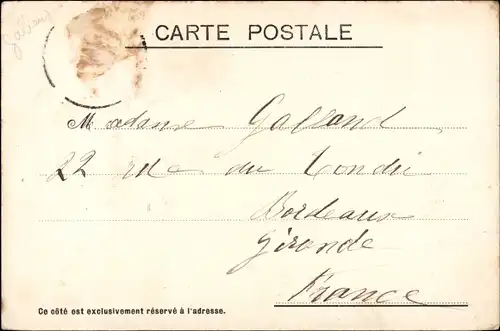 CARTE POSTALE
Madame Galland
22 rue du Tondu
Bordeaux
Gironde
France
Ce côté est exclusivement réservé à l'adresse.